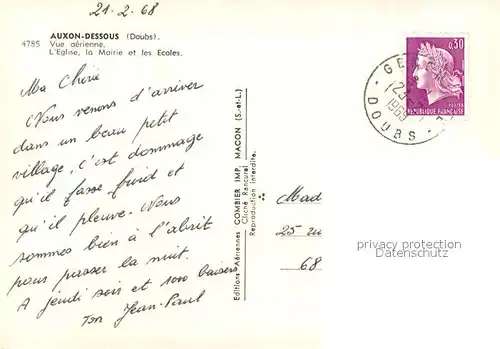 21-2-68
AUXON-DESSOUS (Doubs).
4785 Vue aérienne.
L'Eglise, la Mairie et les Ecoles.
Ma Chérie
Nous venons d'arriver
dans un beau petit
village, c'est dommage
qu'il fasse froid et
qu'il pleuve. Nous
sommes bien à l'abrit
pour passer la nuit.
A jeudi soir et 1000 baisers
Ton Jean-Paul
Editions Aériennes COMBIER IMP. MACON (S.-et-L.)
Cliché Rancurel
Reproduction interdite.
0,30
POSTES
REPUBLIQUE FRANÇAISE
GE
DOUBS
Mad
25 ru
68
privacy protection
Datenschutz